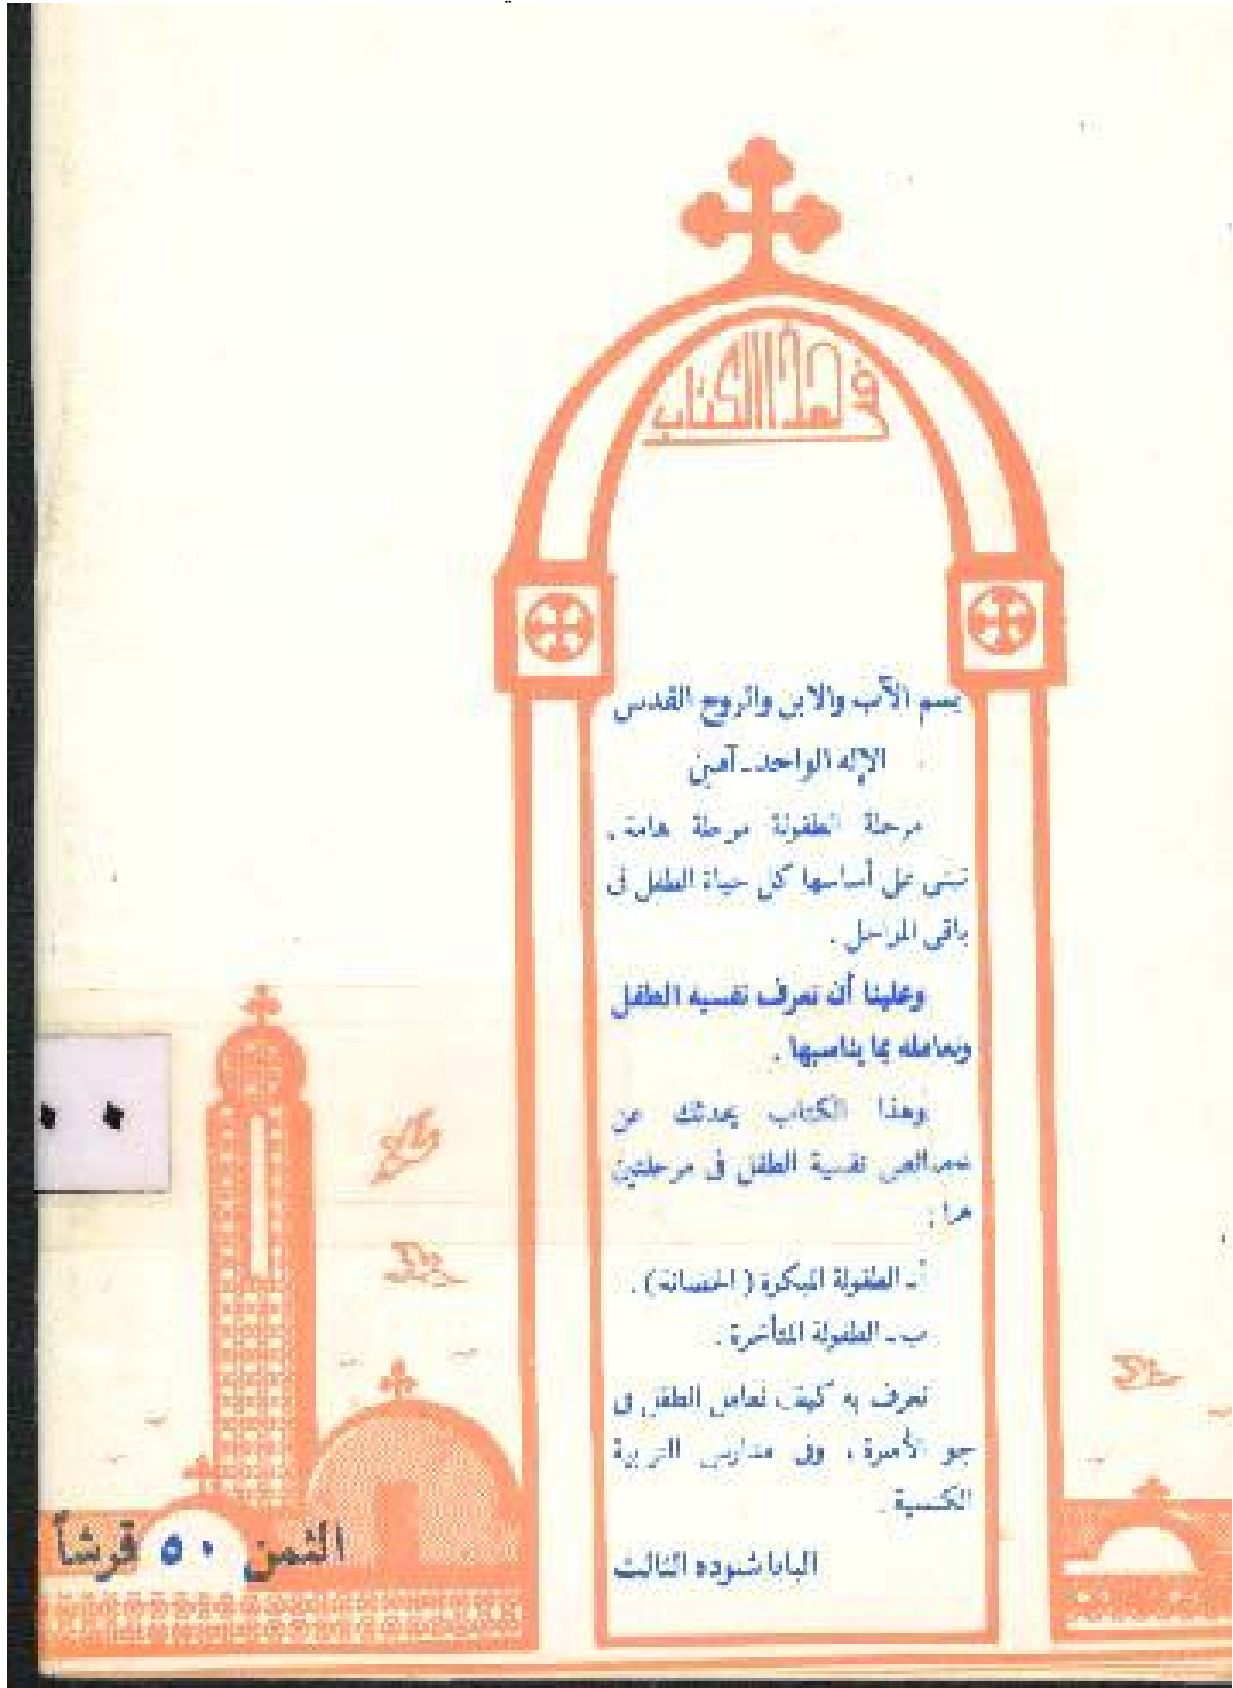 في هذا الكتاب
بسم الآب والابن والروح القدس
الإله الواحد ـ آمين
مرحلة الطفولة مرحلة هامة ،
تبنى على أساسها كل حياة الطفل فى
باقى المراحل .
وعلينا أن نعرف نفسيه الطفل
ونعامله بما يناسبها .
وهذا الكتاب يحدثك عن
خصائص نفسية الطفل فى مرحلتين
هما :
أ ـ الطفولة المبكرة ( الحضانة ) .
ب ـ الطفولة المتأخرة .
تعرف به كيف نعامل الطفل فى
جو الأسرة ، وفى مدارس التربية
الكنسية .
البابا شنوده الثالث
الثمن ٥٠ قرشاً